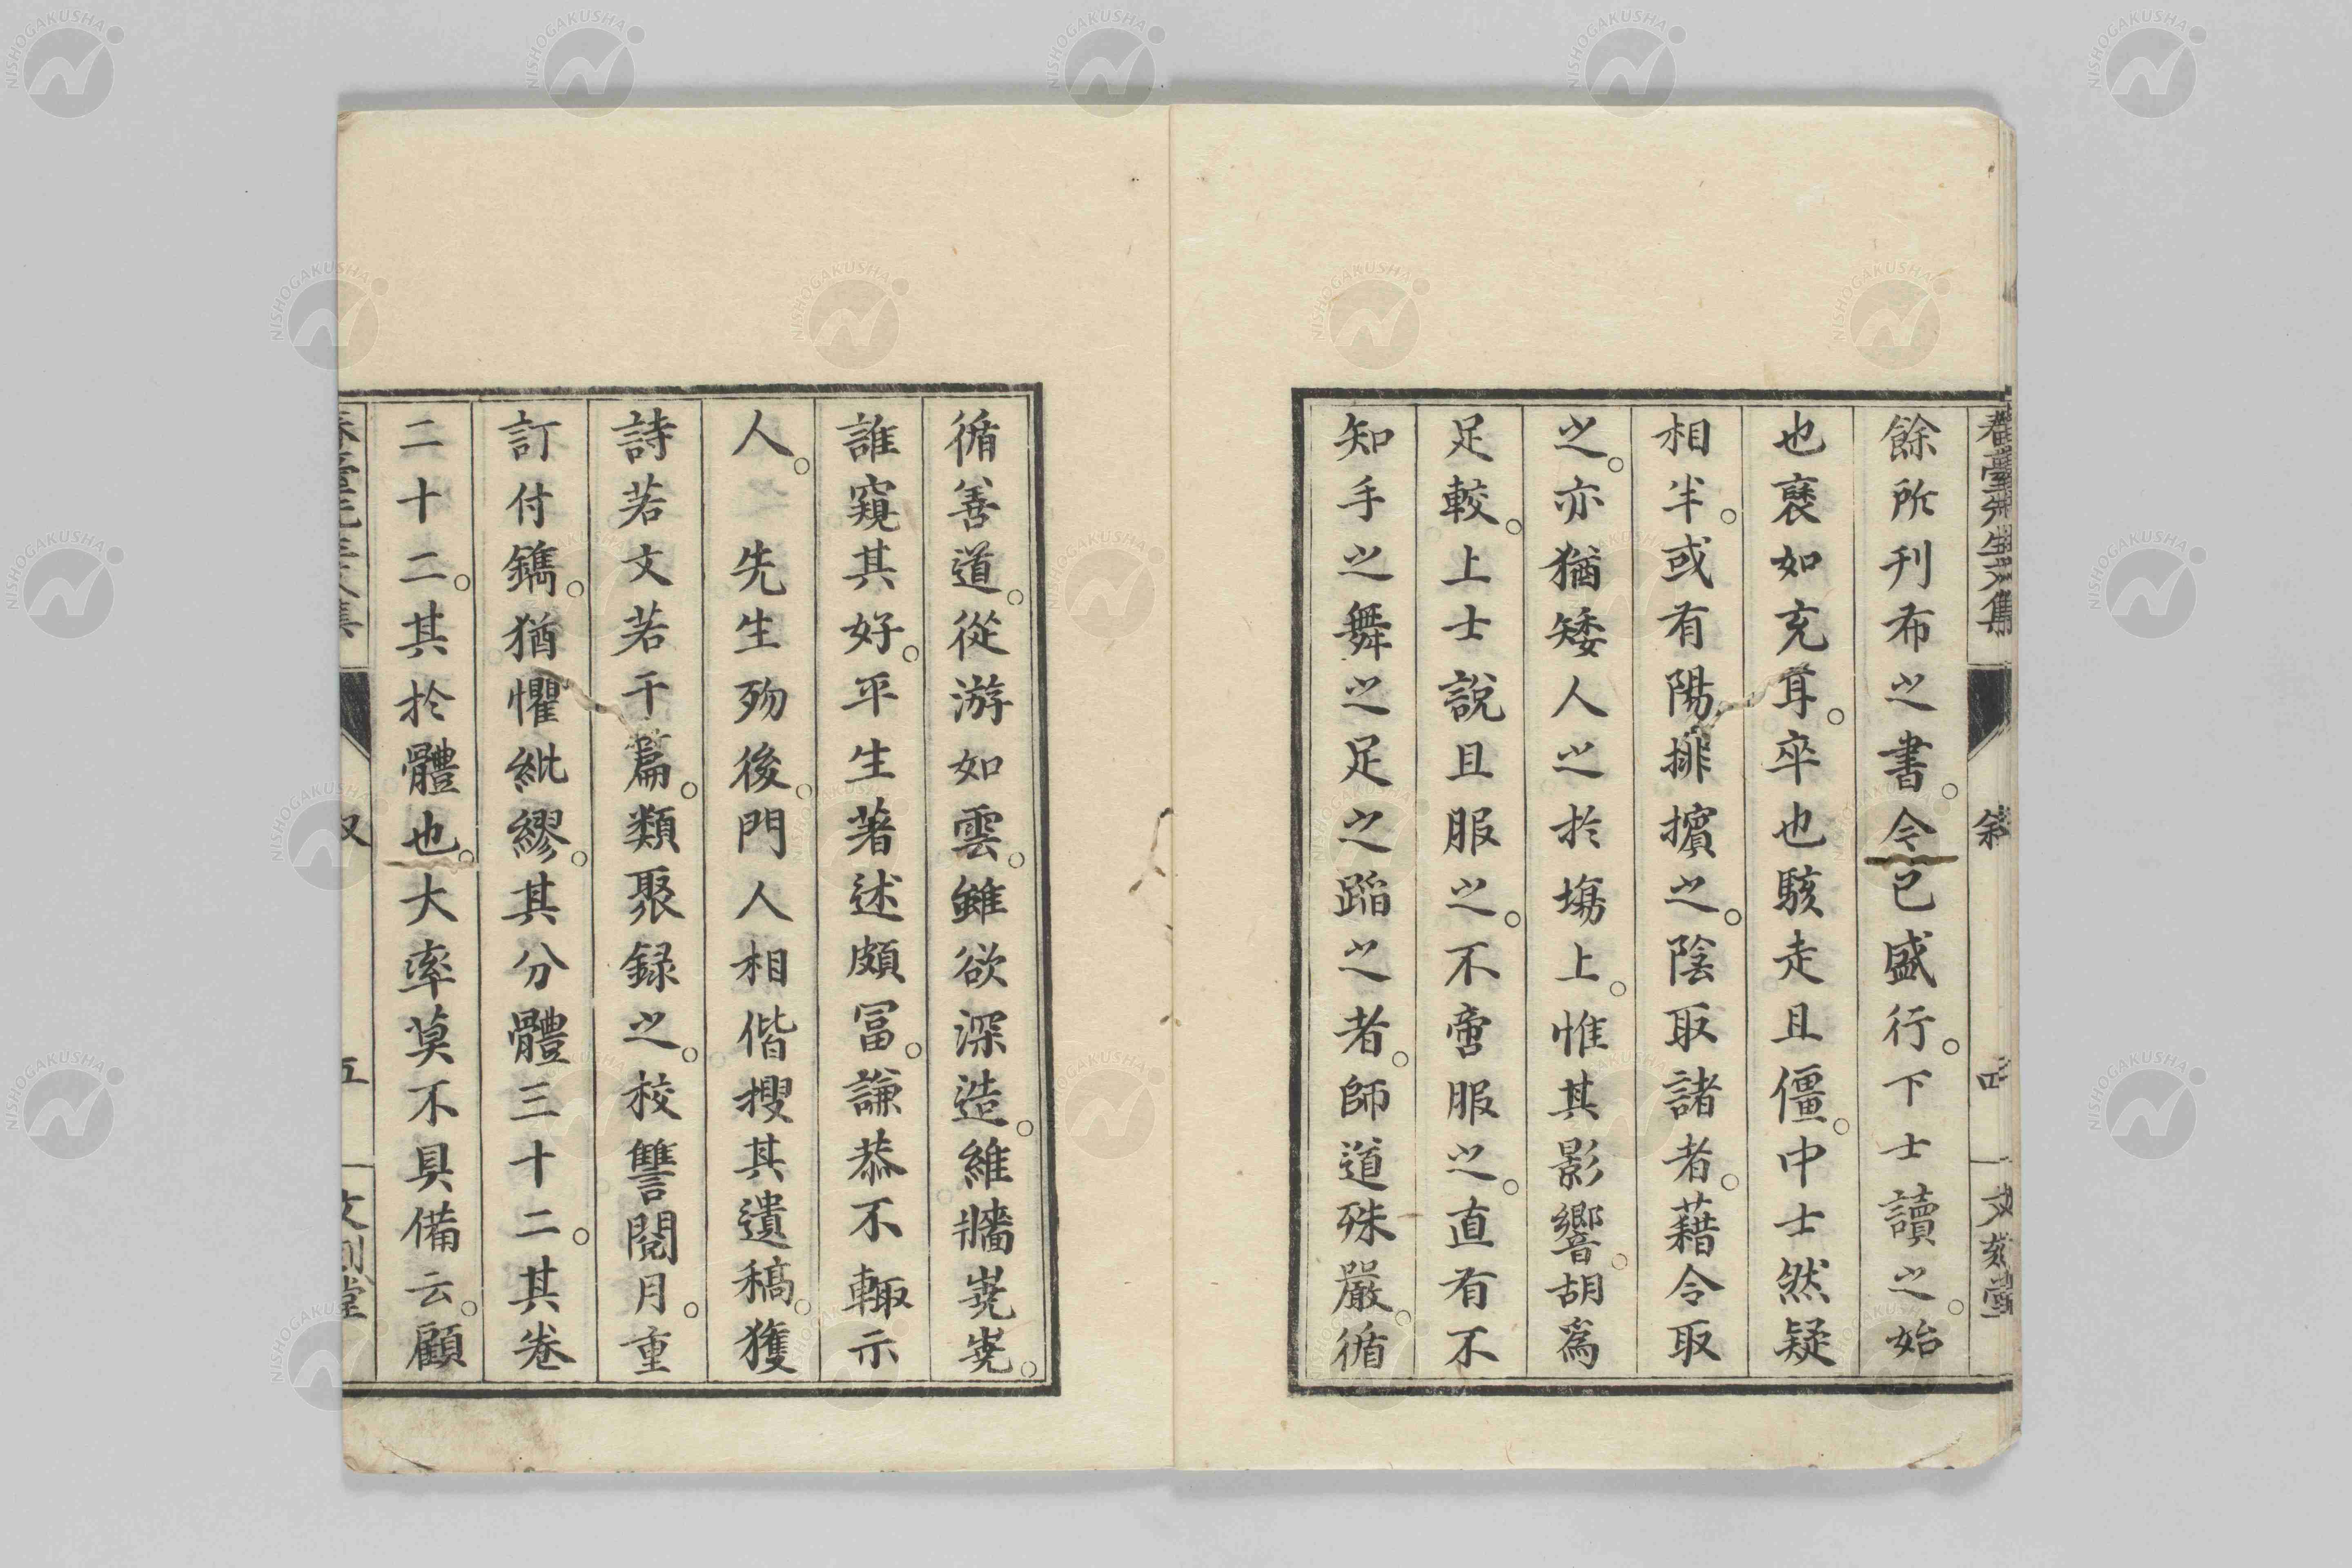 餘所刊布之書。今已盛行。下士讀之。始
也裦如充耳。卒也駭走且僵。中士然疑
相半。或有陽排擯之。陰取諸者。藉令取
之。亦猶矮人之於塲上。惟其影響。胡為
足較。上士說且服之。不啻服之。直有不
知手之舞之足之蹈之者。師道殊嚴。循
循善道。從游如雲。雖欲深造。維牆嶤嶤。
誰窺其好。平生著述頗冨。謙恭不輙示
人。先生歿後。門人相偕搜其遺稿。獲
詩若文若干篇。類聚録之。校讐閱月。重
訂付鐫。猶懼紕繆。其分體三十二。其卷
二十二。其於體也。大率莫不具備云。顧
叙
四
五
NISHOGAKUSHA